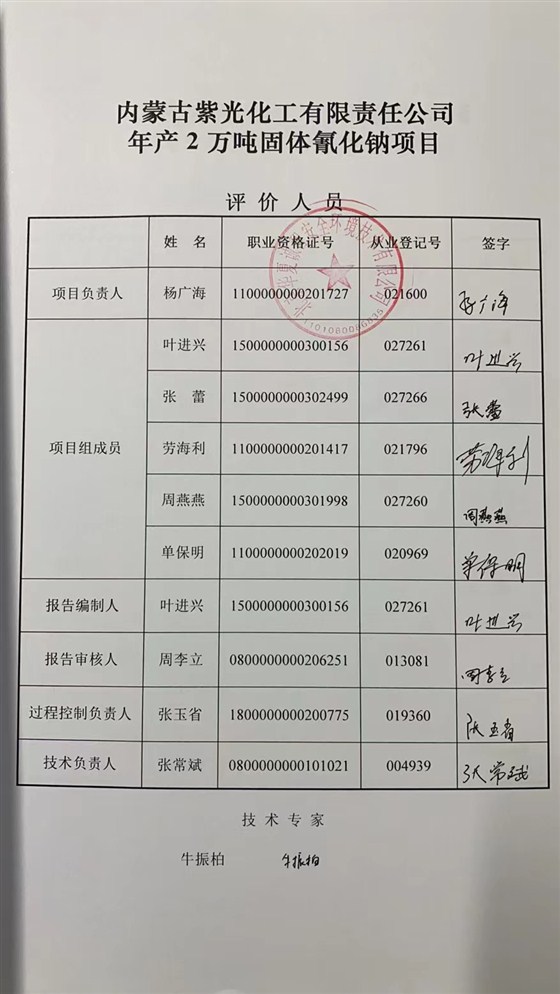 内蒙古紫光化工有限责任公司
年产 2 万吨固体氰化钠项目
评 价 人 员
姓 名 职业资格证号 从业登记号 签字
项目负责人 杨广海 1100000000201727 021600 杨广海
项目组成员 叶进兴 1500000000300156 027261 叶进兴
张 蕾 1500000000302499 027266 张蕾
劳海利 1100000000201417 021796 劳海利
周燕燕 1500000000301998 027260 周燕燕
单保明 1100000000202019 020969 单保明
报告编制人 叶进兴 1500000000300156 027261 叶进兴
报告审核人 周李立 0800000000206251 013081 周李立
过程控制负责人 张玉省 1800000000200775 019360 张玉省
技术负责人 张常斌 0800000000101021 004939 张常斌
技 术 专 家
牛振柏 牛振柏